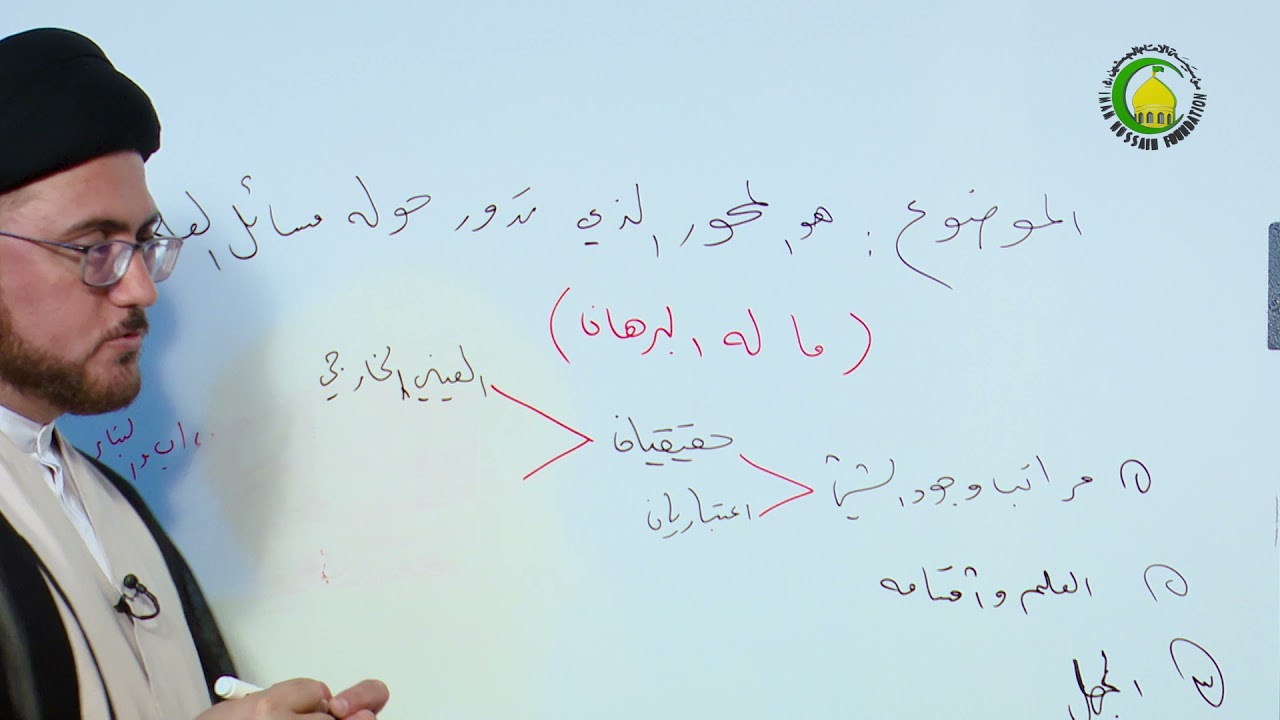 مؤسسة الامام الحسين
IMAM HUSSAIN FOUNDATION
الموضوع : هو المحور الذي تدور حوله مسائل العلم
( ما له البرهان )
العيني الخارجي
حقيقيان
اعتباريان
١ مراتب وجود الشيء
٢ العلم وأقسامه
٣ الجهل